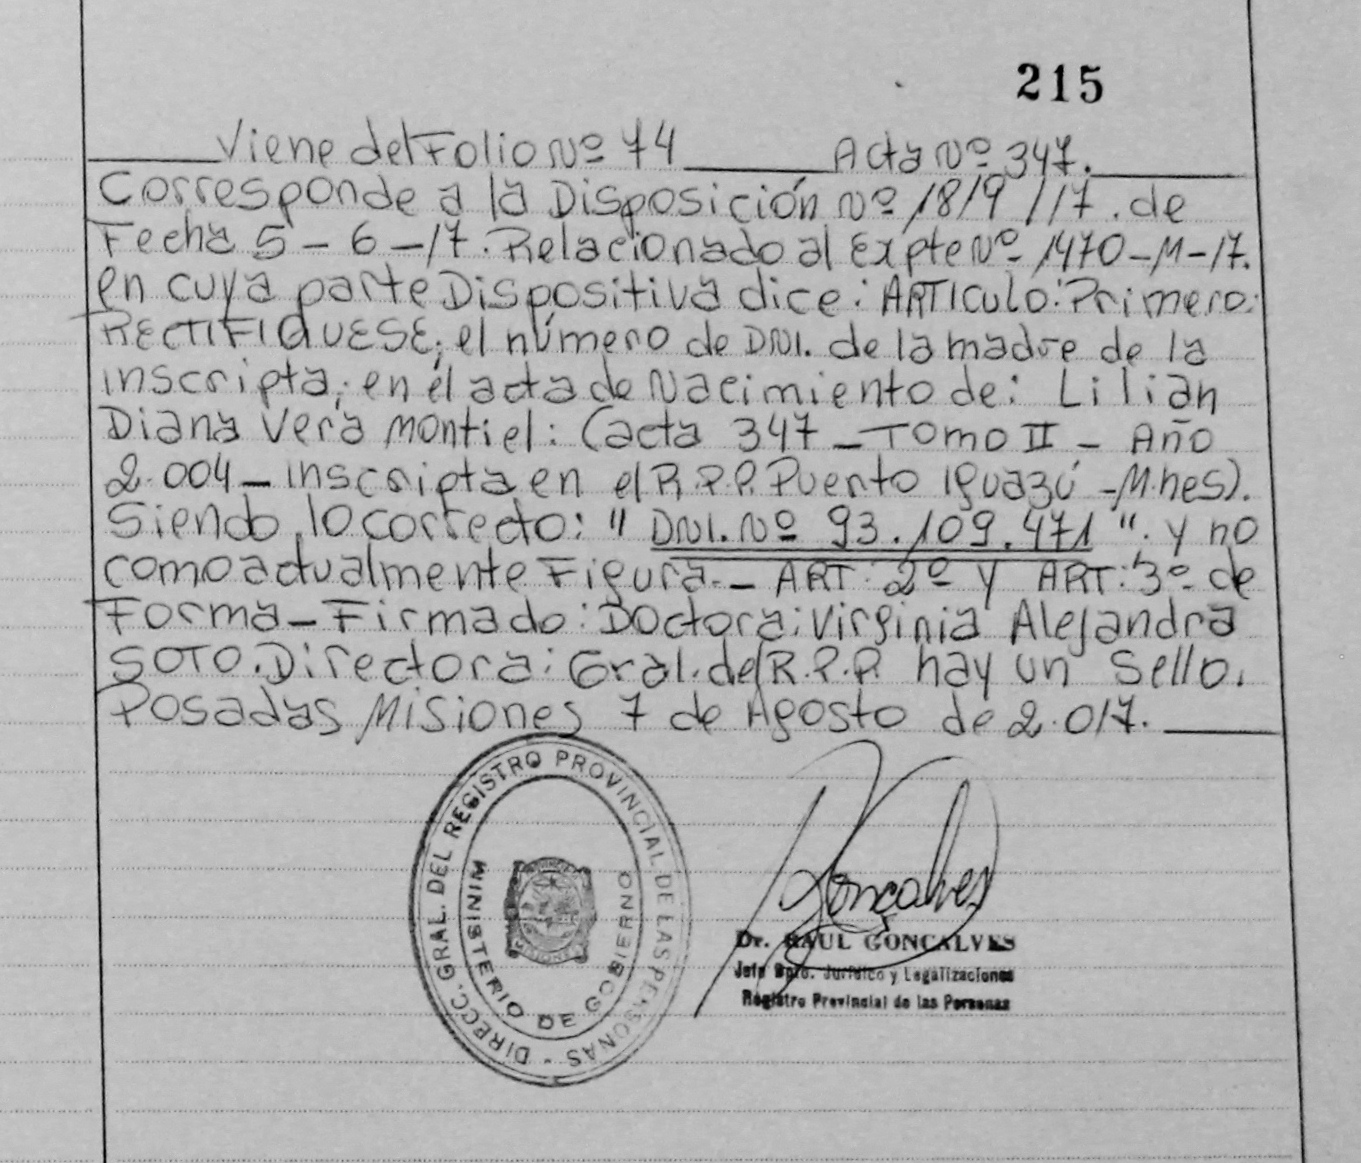 215
Viene del Folio Nº 74 Acta Nº 347.
Corresponde a la Disposición Nº 1819/17. de
Fecha 5-6-17. Relacionado al Expte Nº 1470-M-17.
en cuya parte Dispositiva dice: ARTICULO: Primero:
RECTIFIQUESE; el número de DNI. de la madre de la
inscripta; en el acta de Nacimiento de: Lilian
Diana Vera Montiel: (acta 347 - Tomo II - Año
2.004 - inscripta en el R.P.P. Puerto Iguazú - M.nes).
Siendo lo correcto: " DNI. Nº 93.109.471 ". y no
como actualmente Figura. - ART: 2º y ART: 3º de
Forma - Firmado: Doctora: Virginia Alejandra
SOTO. Directora: Gral. del R.P.P. hay un Sello.
Posadas Misiones 7 de Agosto de 2.017.
DIRECC. GRAL. DEL REGISTRO PROVINCIAL DE LAS PERSONAS -
MINISTERIO DE GOBIERNO
Gonçalves
Dr. RAUL GONÇALVES
Jefe Dpto. Jurídico y Legalizaciones
Registro Provincial de las Personas